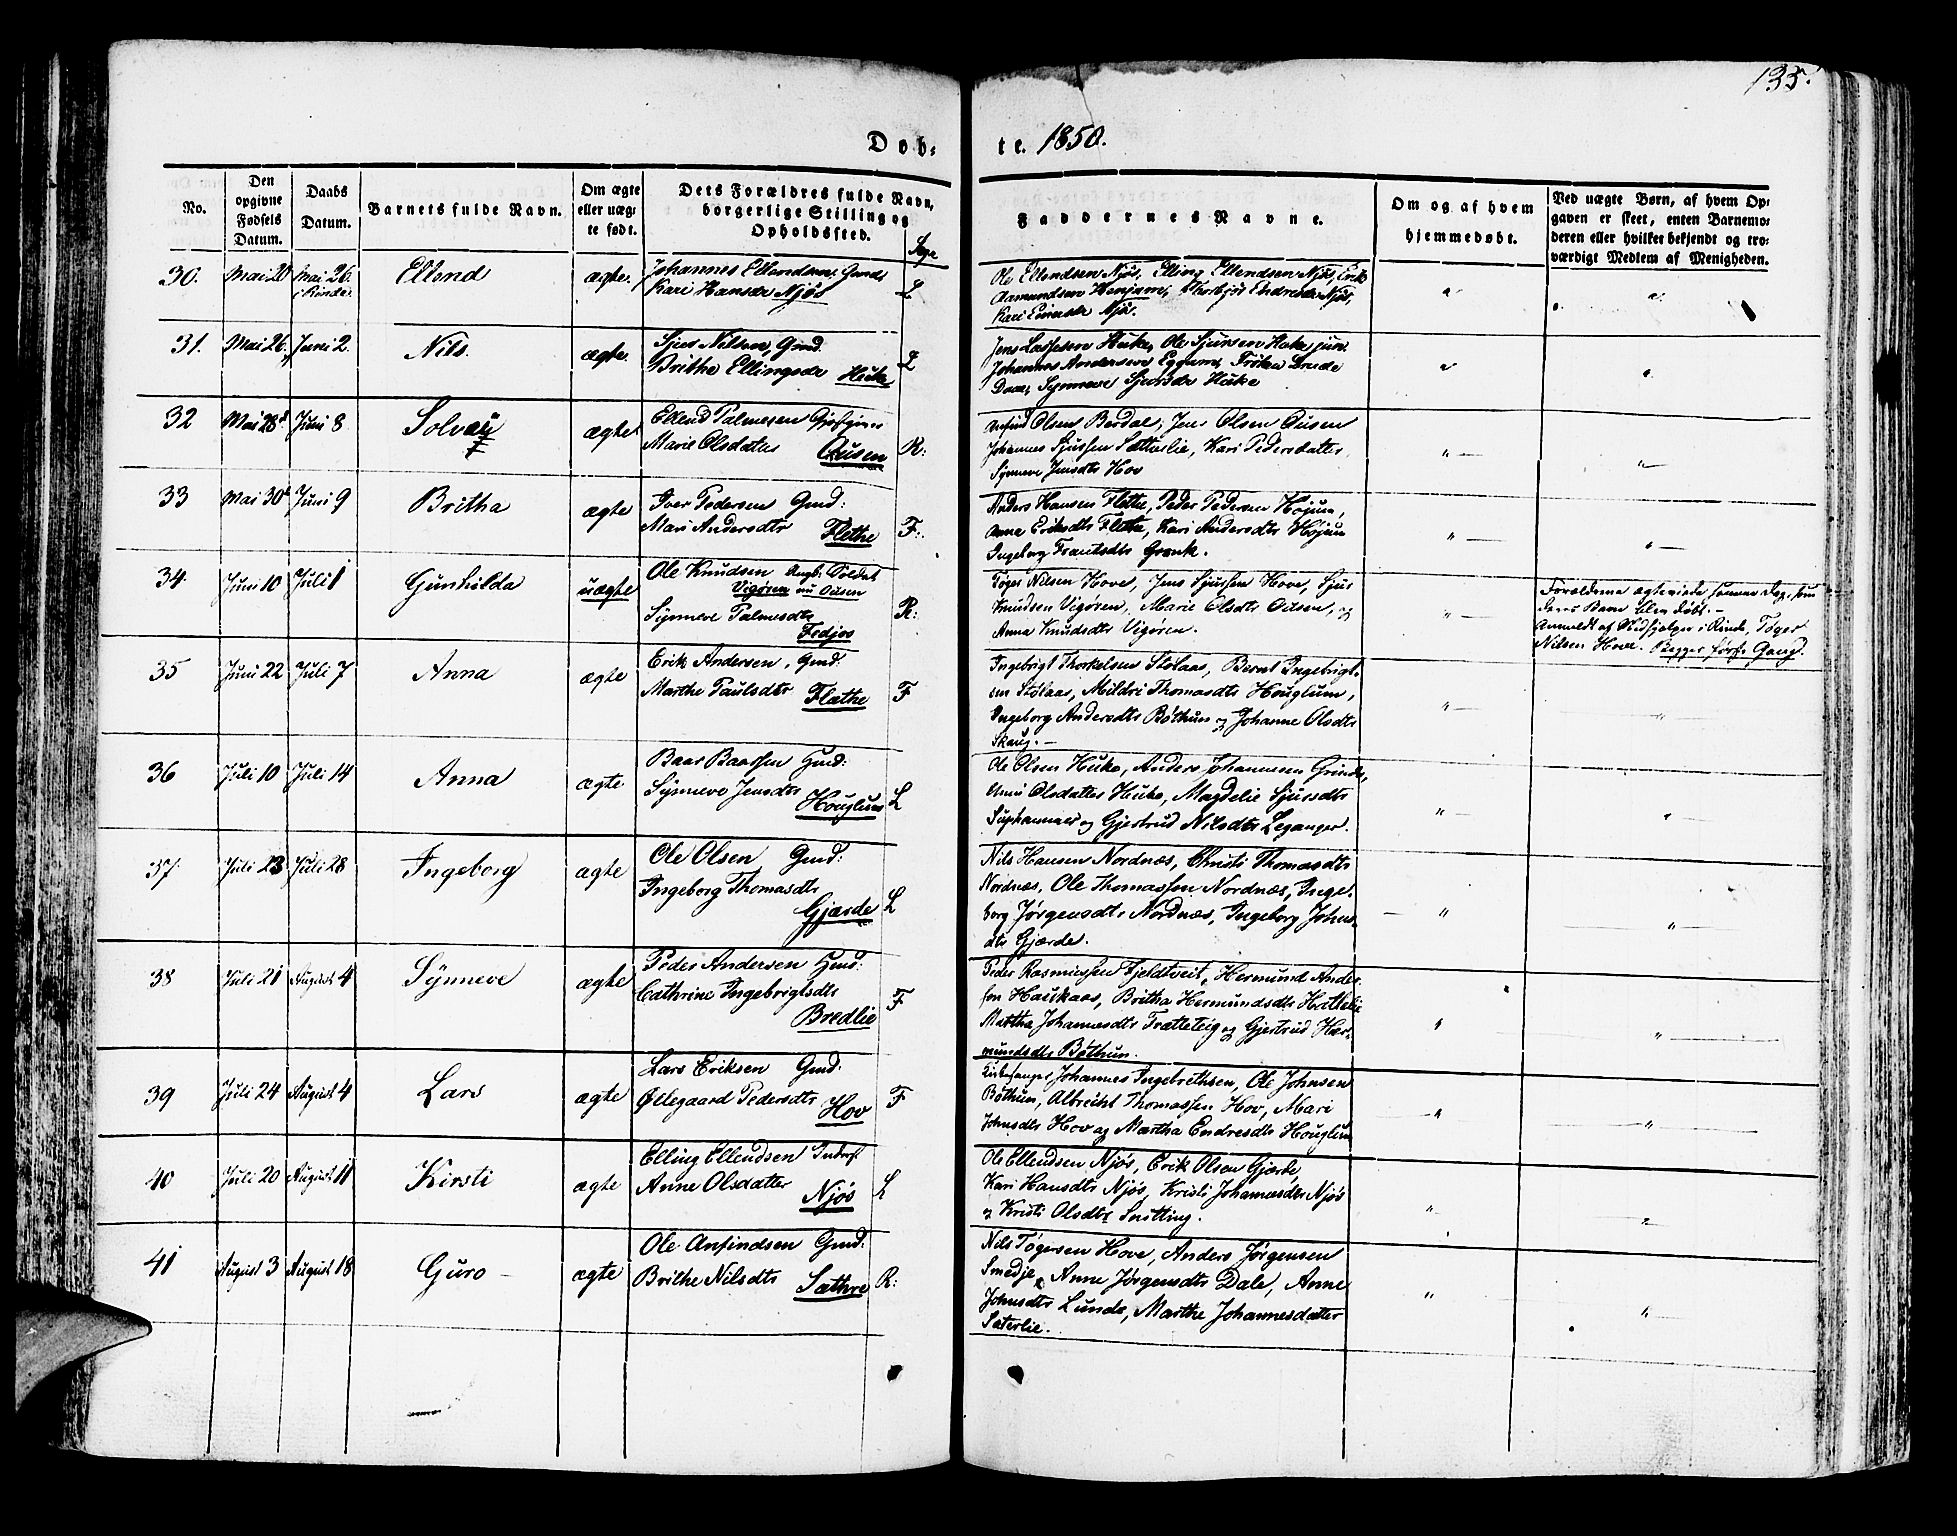 135.
Døb-
te. 1850.
No.
Den
opgivne
Fødsels
Datum.
Daabs
Datum.
Barnets fulde Navn.
Om ægte
eller uæg-
te født.
Dets Forældres fulde Navn,
borgerlige Stilling og
Opholdssted.
Sogn
Faddernes Navne.
Om og af hvem
hjemmedøbt.
Ved uægte Børn, af hvem Op-
gaven er skeet, enten Barnemo-
deren eller hvilket bekjendt og tro-
værdigt Medlem af Menigheden.
30. Mai 20 Mai 26 Ellend ægte. Johannes Ellendsen, Gmd. L
i Rinde.
Kari Hansdr Njøs
Ole Ellendsen Njøs, Elling Ellendsen Njøs, Erik
Aamundsen Henjum, Thorbjør Endresdr Njøs,
Kari Njøs.
31. Mai 26. Juni 2. Nils. ægte. Sjur Nilsen, Gmd. L
Brithe Ellingsdr Huke
Jens Lassesen Huke, Ole Sjursen Huke jun.
Johannes Andersen Eggum,
Synneve Sjursdr Huke
32 Mai 28d Juni 8 Solvei ægte Ellend Palmesen R:
Marie Olsdatter Ousen
Anfind Olsen Berdal, Jens Olsen Ousen
Johannes Sjursen Sætterlie, Kari Pedersdatter
Synneve Jensdtr Hov
33 Mai 30d Juni 9 Britha ægte Iver Pedersen Gmd: F:
Mari Andersdtr Flethe
Anders Hansen Flethe, Peder Pedersen Højum,
Anna Eriksdtr Flethe, Kari Andersdtr Højum
Ingeborg Frantsdtr Grønk.
34. Juni 10 Juli 1 Gunhilda uægte Ole Knudsen Ungk: Soldat R:
Vigøren nu Ousen
Synneve Palmesdtr
Fedjos
Tøger Nilsen Hove, Jens Sjursen Hove, Sjur
Knudsen Vigøren, Marie Olsdtr Ousen, og
Anna Knudsdtr Vigøren.
Forældrene ægteviede samme Dag, som
deres Barn blev døbt. —
Anmeldt af Medhjelper i Rinde, Tøger
Nilsen Hove. Begges første Gang.
35 Juni 22 Juli 7 Anna ægte Erik Andersen, Gmd. F
Marthe Paulsdtr Flæthe
Ingebrigt Thorkelsen Stølaas, Bernt Ingebrigt-
sen Stølaas, Mildri Thomasdtr Houglum,
Ingeborg Andersdtr Bøthun og Johanne Olsdtr
Skaug. —
36 Juli 10 Juli 14 Anna ægte Baar Baarsen Gmd: L
Synneve Jensdtr Houglum
Ole Olsen Huke, Anders Johannesen Grinde,
Anna Olsdatter Huke, Magdelie Sjursdtr
Suphammer og Gjertrud Nilsdtr Leganger.
37. Juli 13 Juli 28 Ingeborg ægte Ole Olsen Gmd: L
Ingeborg Thomasdtr
Gjærde
Nils Hansen Nordnæs, Christi Thomasdtr
Nordnæs, Ole Thomassen Nordnæs, Inge-
borg Jørgensdtr Nordnæs, Ingeborg Johns-
dtr Gjærde.
38 Juli 21 August 4 Synneve ægte Peder Andersen Gmd: F
Cathrine Ingebrigtsdtr
Bredlie
Peder Rasmussen Fjeldtveit, Hermund Ander-
sen Haukaas, Britha Hermundsdtr Hattelie
Martha Johannesdtr Trætteteig og Gjertrud Her-
mundsdtr Bøthun.
39 Juli 24 August 4 Lars ægte Lars Eriksen Gmd: F
Øllegaard Pedersdtr Hov
Kirkesanger Johannes Ingebrethsen, Ole Johnsen
Bøthun, Albrecht Thomassen Hov, Mari
Johnsdtr Hov og Martha Endresdtr Houglum
40 Juli 20 August 11 Kirsti ægte Elling Ellendsen Inderst L
Anne Olsdatter Njøs
Ole Ellendsen Njøs, Erik Olsen Gjærde,
Kari Hansdtr Njøs, Kristi Johannesdtr Njøs
og Kristi Olsdtr Snitting.
41 August 3 August 18 Guro — ægte Ole Anfindsen Gmd: R:
Brithe Nilsdtr Sathre
Nils Tøgersen Hove, Anders Jørgensen
Smedje, Anne Jørgensdtr Dale, Anne
Johnsdtr Lunde, Marthe Johannesdatter
Sæterlie.